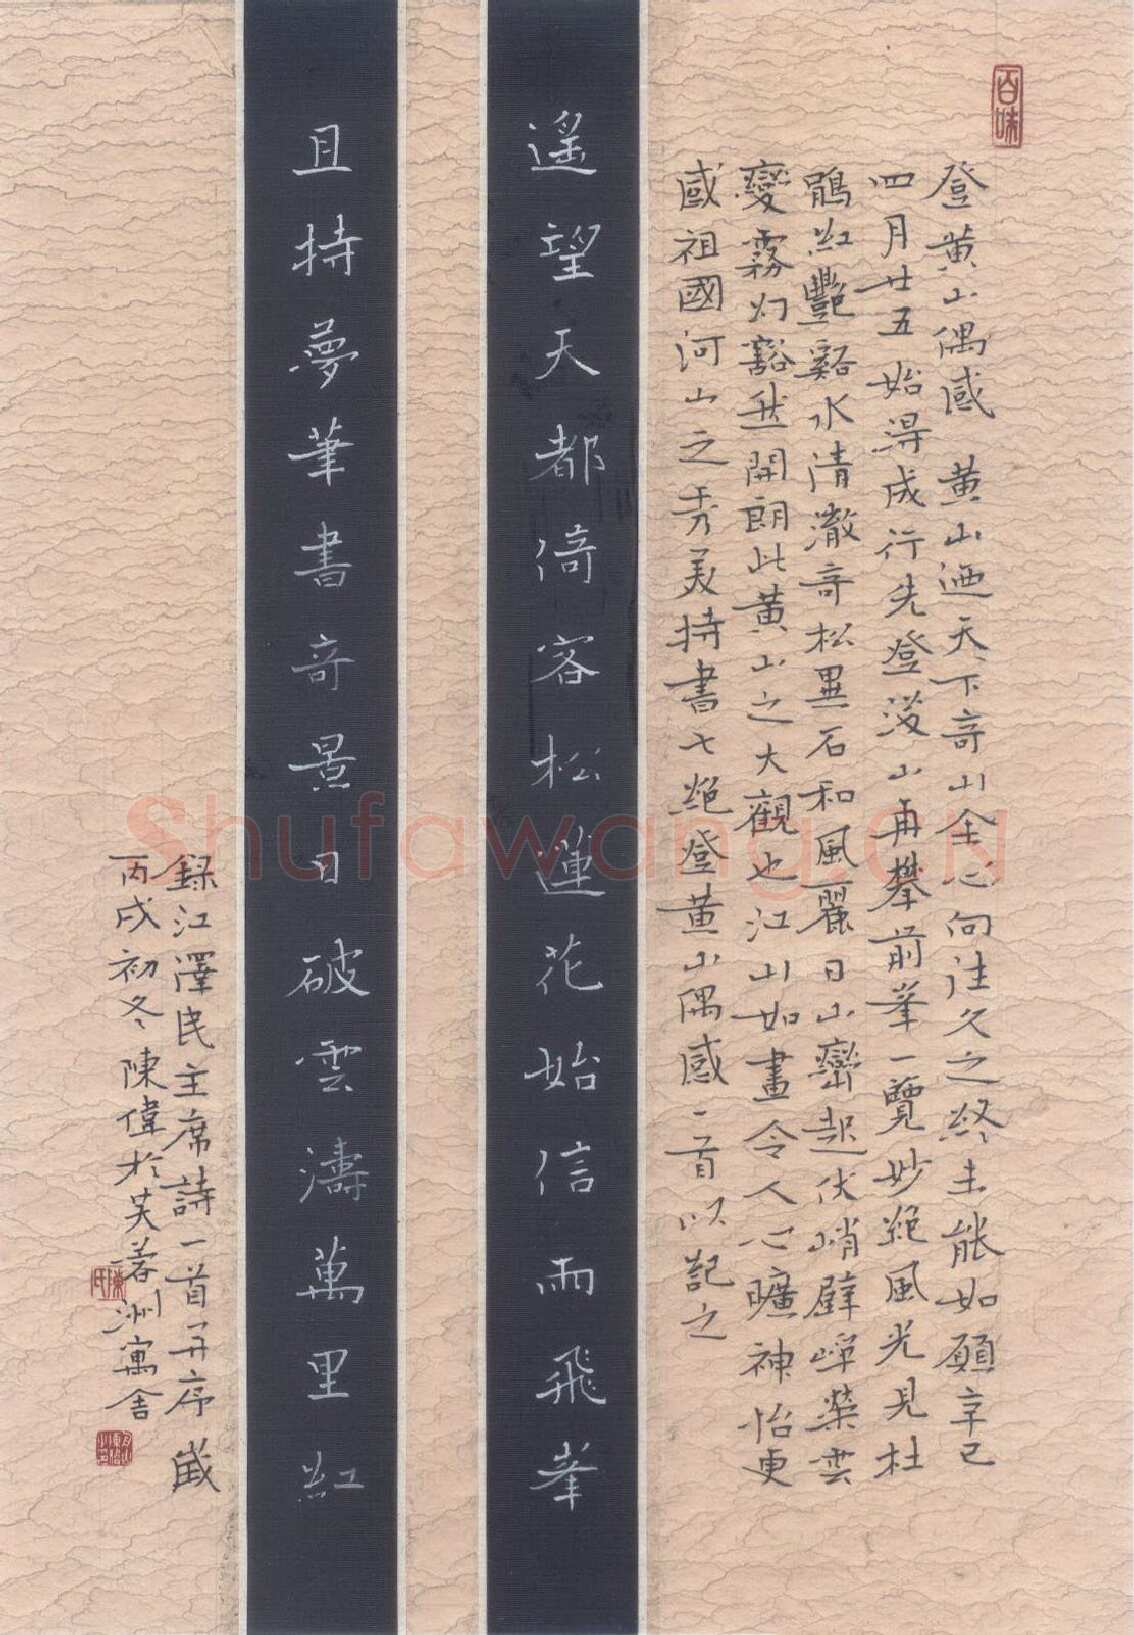 百味
登黄山偶感　黄山迺天下奇山余心向往久之終未能如願辛巳
四月廿五始得成行先登後山再攀前峯一覽妙絕風光見杜
鵑紅豔谿水清澈奇松異石和風麗日山巒起伏峭壁崢嶸雲
變霧幻豁然開朗此黄山之大觀也江山如畫令人心曠神怡更
感祖國河山之秀美持書七絕登黄山偶感一首以記之
遙望天都倚客松蓮花始信兩飛峯
且持夢筆書奇景日破雲濤萬里紅
録江澤民主席詩一首并序歲
丙戌初冬陳偉於芙蓉洲寓舍
陳氏
Shufawang.CN